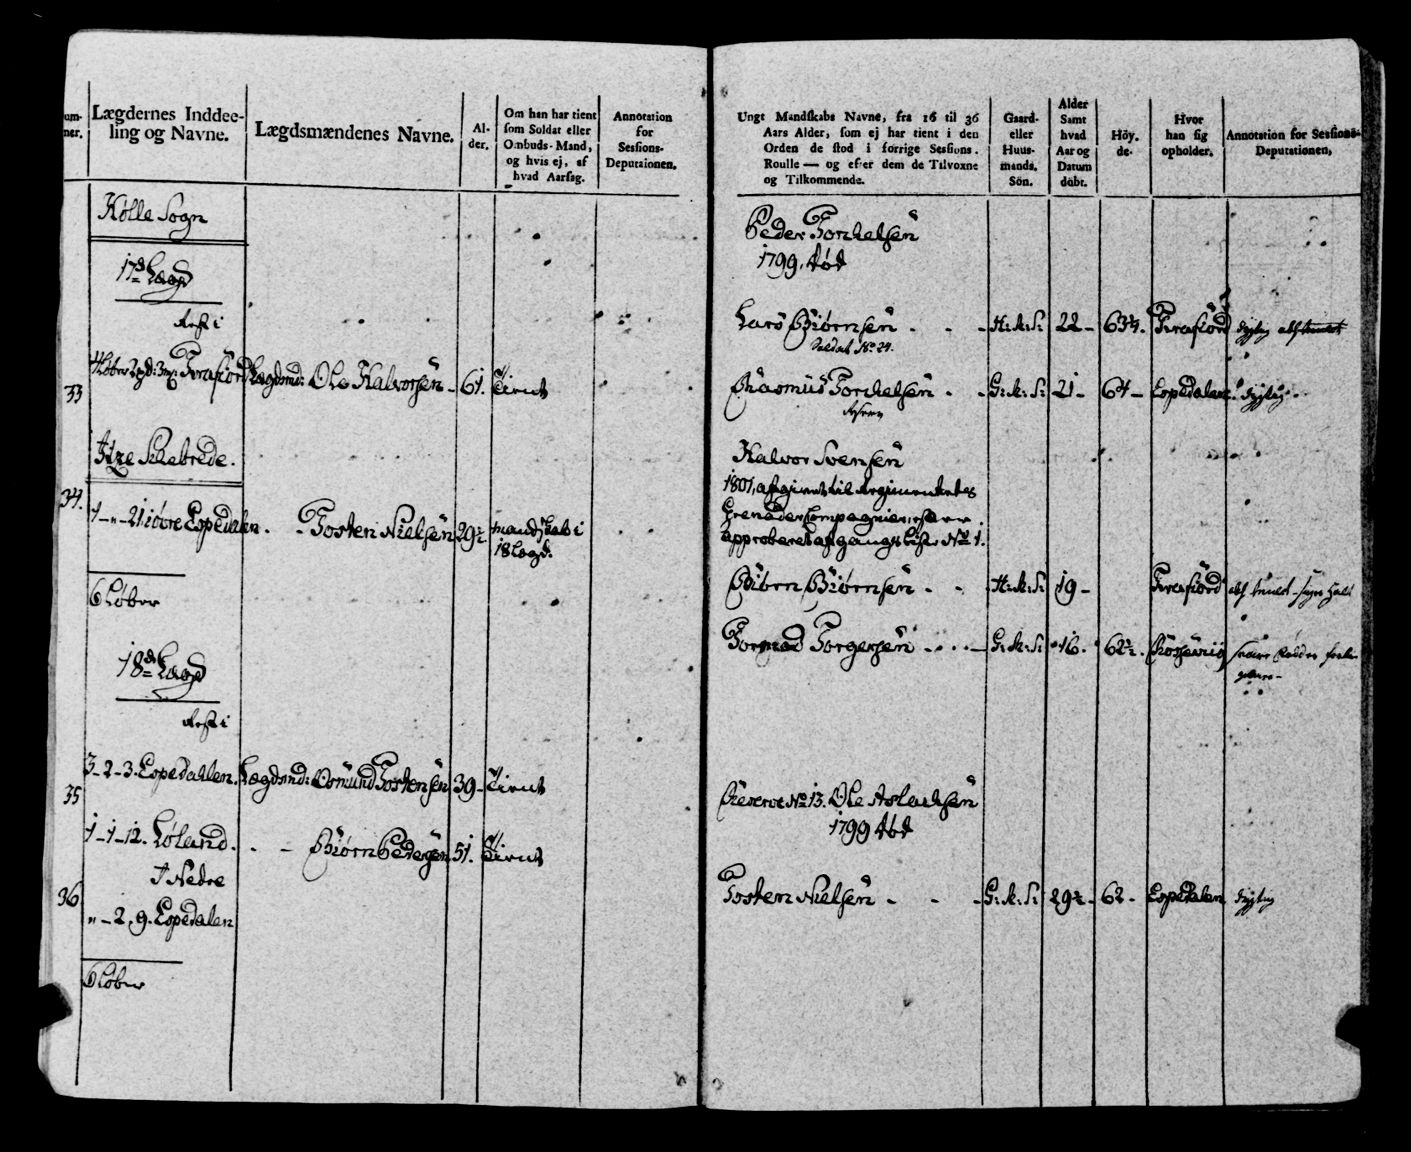 um-
ner.
Lægdernes Inddee-
ling og Navne.
Lægdsmændenes Navne.
Al-
der.
Om han har tient
som Soldat eller
Ombuds-Mand,
og hvis ej, af
hvad Aarsag.
Annotation
for
Sessions-
Deputaionen.
Hølle Sogn
17de Lægd
Rest i
33
4 Løber
Fræfiord
Lægdsmd: Ole Halvorsen - 61. Tient
Skebrede.
34.
Espedalen. - Tosten Nielsen 29½
mandskab i
18 Lægd.
6 Løber
18de Lægd
Rest i
35
3-2-3. Espedallen. Lægdsmd: Osmund Tostensen 39- Tient
1-1-12. Løland. - Biørn Pedersen 51. Tient
36
Nedre
"-2. 9. Espedalen
6 Løber
Ungt Mandskabs Navne, fra 16 til 36
Aars Alder, som ej har tient i den
Orden de stod i forrige Sessions.
Roulle — og efter dem de Tilvoxne
og Tilkommende.
Gaard-
eller
Huus-
mands.
Sön.
Alder
Samt
hvad
Aar og
Datum
döbt.
Höy.
de.
Hvor
han sig
opholder.
Annotation for Sessions-
Deputationen.
Peder Torchelsen
1799. død
Lars Biørnsen - - - H:M:S: 22 - 63¾. Fræfiord dygtig
Soldat No 24.
Rasmus Torchelsen - - G:M:S: 21 - 64 - Espedalen. dygtig.
Halvor Svensen
1801, afgivet til Regimentets
Grenadeer Compagnier
approberet afgangs Liste No 1.
Biørn Biørnsen - - H:M:S: 19 - Fræfiord
Tormod Torgersen - - - G:M:S: 16. 62½.
Reserve No 13. Ole Aslachsen
1799 død
Tosten Nielsen - - - G:M:S: 29½ - 62 - Espedalen dygtig